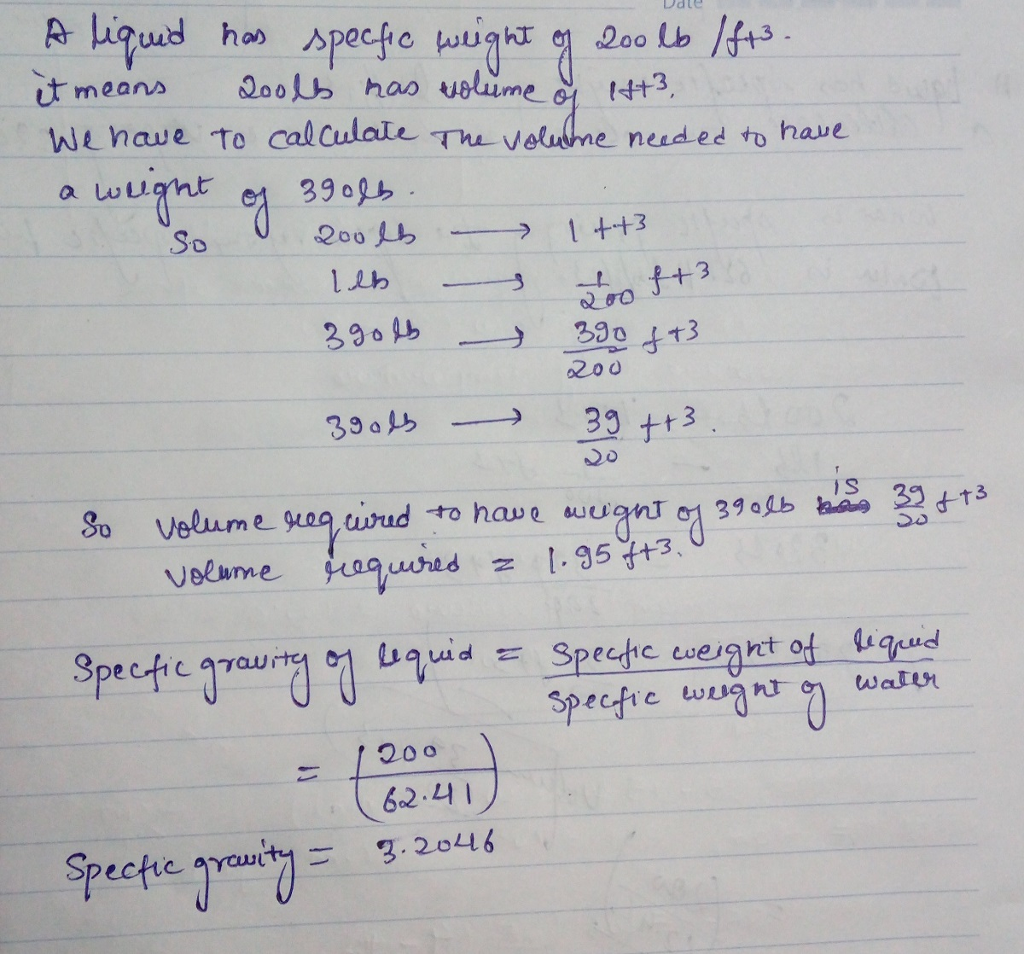 Date
A liquid has specfic weight of 200 lb /ft3.
it means 200lb has volume of 1ft3.
We have To calculate The volume needed to have
a weight of 390lb.
So 200 lb → 1 ft3
1 lb → 1/200 ft3
390 lb → 390/200 ft3
390lb → 39/20 ft3.
So volume required to have weight of 390lb is 39/20 ft3
volume required = 1.95 ft3.
Specfic gravity of liquid = Specfic weight of liquid / Specfic weight of water
= (200/62.41)
Specfic gravity = 3.2046